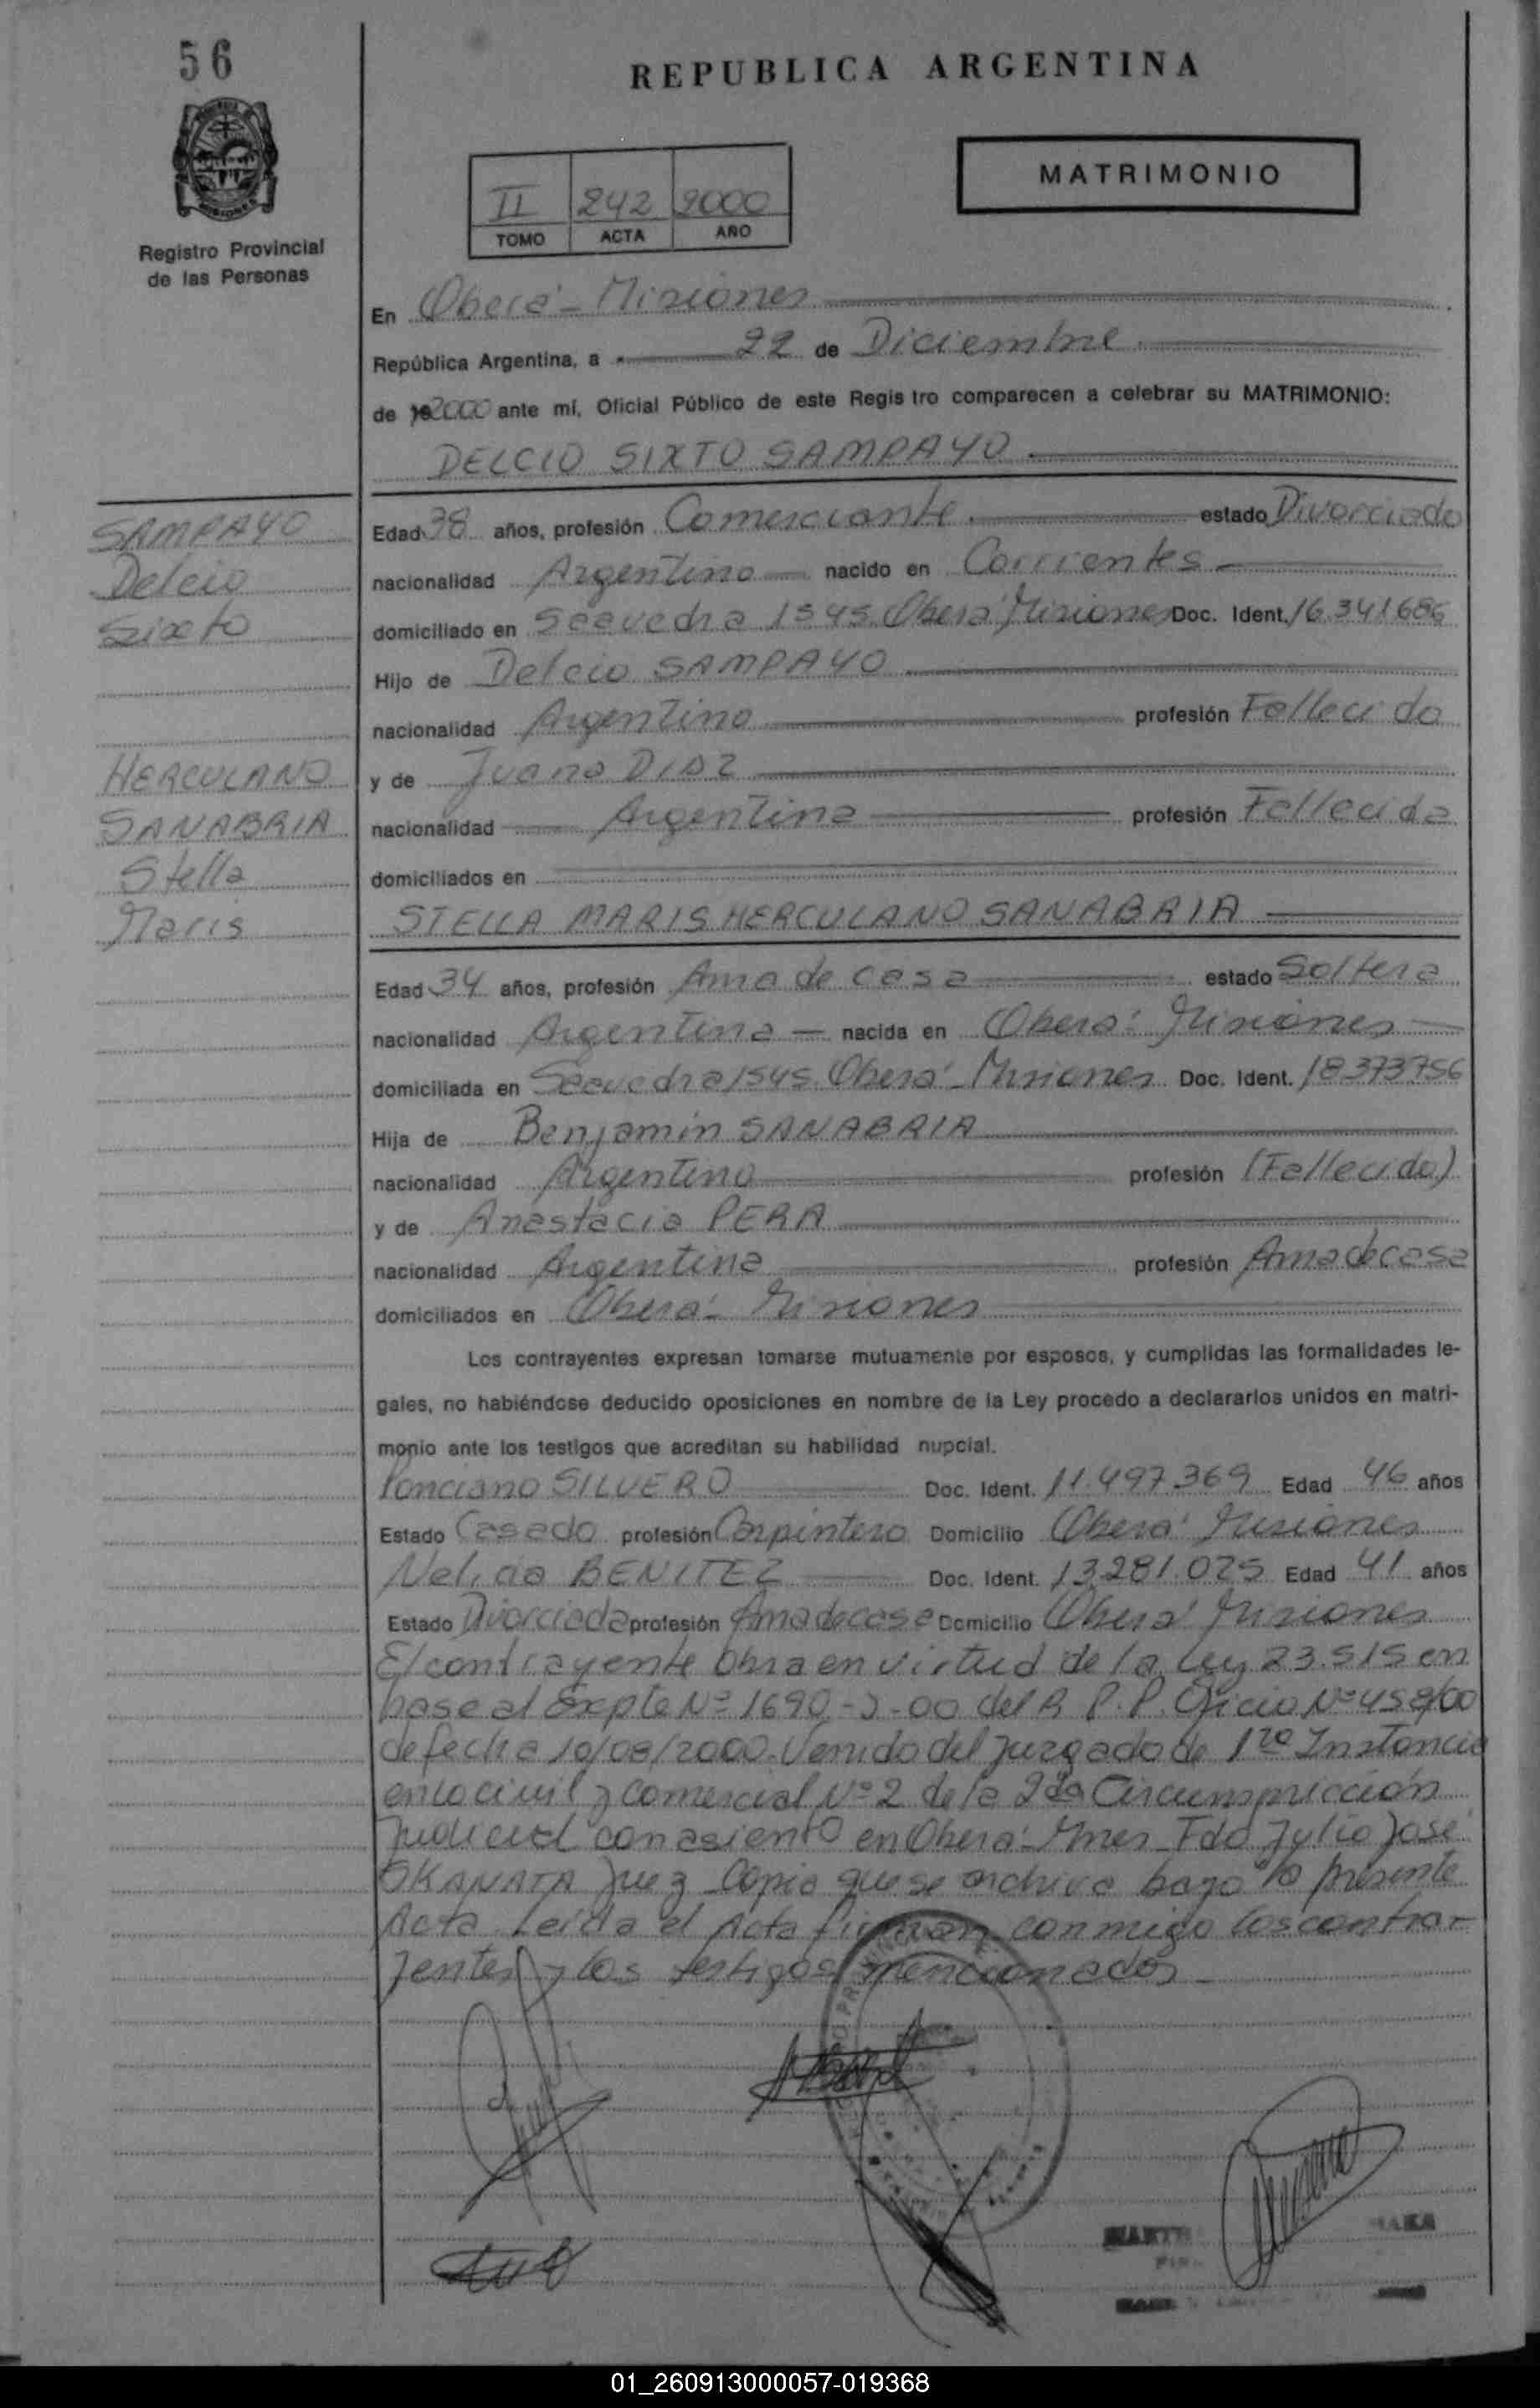 56
REPUBLICA ARGENTINA
MATRIMONIO
II 242 2000
TOMO ACTA AÑO
Registro Provincial
de las Personas
En Oberá - Misiones
República Argentina, a 22 de Diciembre
de 2000 ante mí, Oficial Público de este Regis tro comparecen a celebrar su MATRIMONIO:
DELCIO SIXTO SAMPAYO
SAMPAYO
Delcio
Sixto
HERCULANO
SANABRIA
Stella
Maris
Edad 38 años, profesión Comerciante estado Divorciado
nacionalidad Argentino nacido en Corrientes
domiciliado en Saavedra 1545 Oberá Misiones Doc. Ident. 16.341686
Hijo de Delcio SAMPAYO
nacionalidad Argentino profesión Fallecido
y de Juana DIAZ
nacionalidad Argentina profesión Fallecida
domiciliados en
STELLA MARIS HERCULANO SANABRIA
Edad 34 años, profesión Ama de casa estado Soltera
nacionalidad Argentina nacida en Oberá Misiones
domiciliada en Saavedra 1545 Oberá - Misiones Doc. Ident. 18373756
Hija de Benjamin SANABRIA
nacionalidad Argentino profesión (Fallecido)
y de Anastacia PERA
nacionalidad Argentina profesión Ama de casa
domiciliados en Oberá - Misiones
Los contrayentes expresan tomarse mutuamente por esposos, y cumplidas las formalidades le-
gales, no habiéndose deducido oposiciones en nombre de la Ley procedo a declararlos unidos en matri-
monio ante los testigos que acreditan su habilidad nupcial.
Ponciano SILVERO Doc. Ident. 11.497.369 Edad 46 años
Estado Casado profesión Carpintero Domicilio Oberá Misiones
Nelida BENITEZ Doc. Ident. 13281.025 Edad 41 años
Estado Divorciada profesión Ama de casa Domicilio Oberá Misiones
El contrayente obra en virtud de la Ley 23.515 en
base al Expte Nº 1690 - -00 del R.P.P. Oficio Nº 458/00
de fecha 10/08/2000. Venido del Juzgado de 1ra Instancia
en lo civil y Comercial Nº 2 de la 2da Circunspricción
Judicial con asiento en Oberá - Mnes Fdo Julio José
SKANATA Juez Copia que se archiva bajo la presente
Acta. Leída el Acta firman conmigo los contra-
yentes y los testigos mencionados
01_260913000057-019368